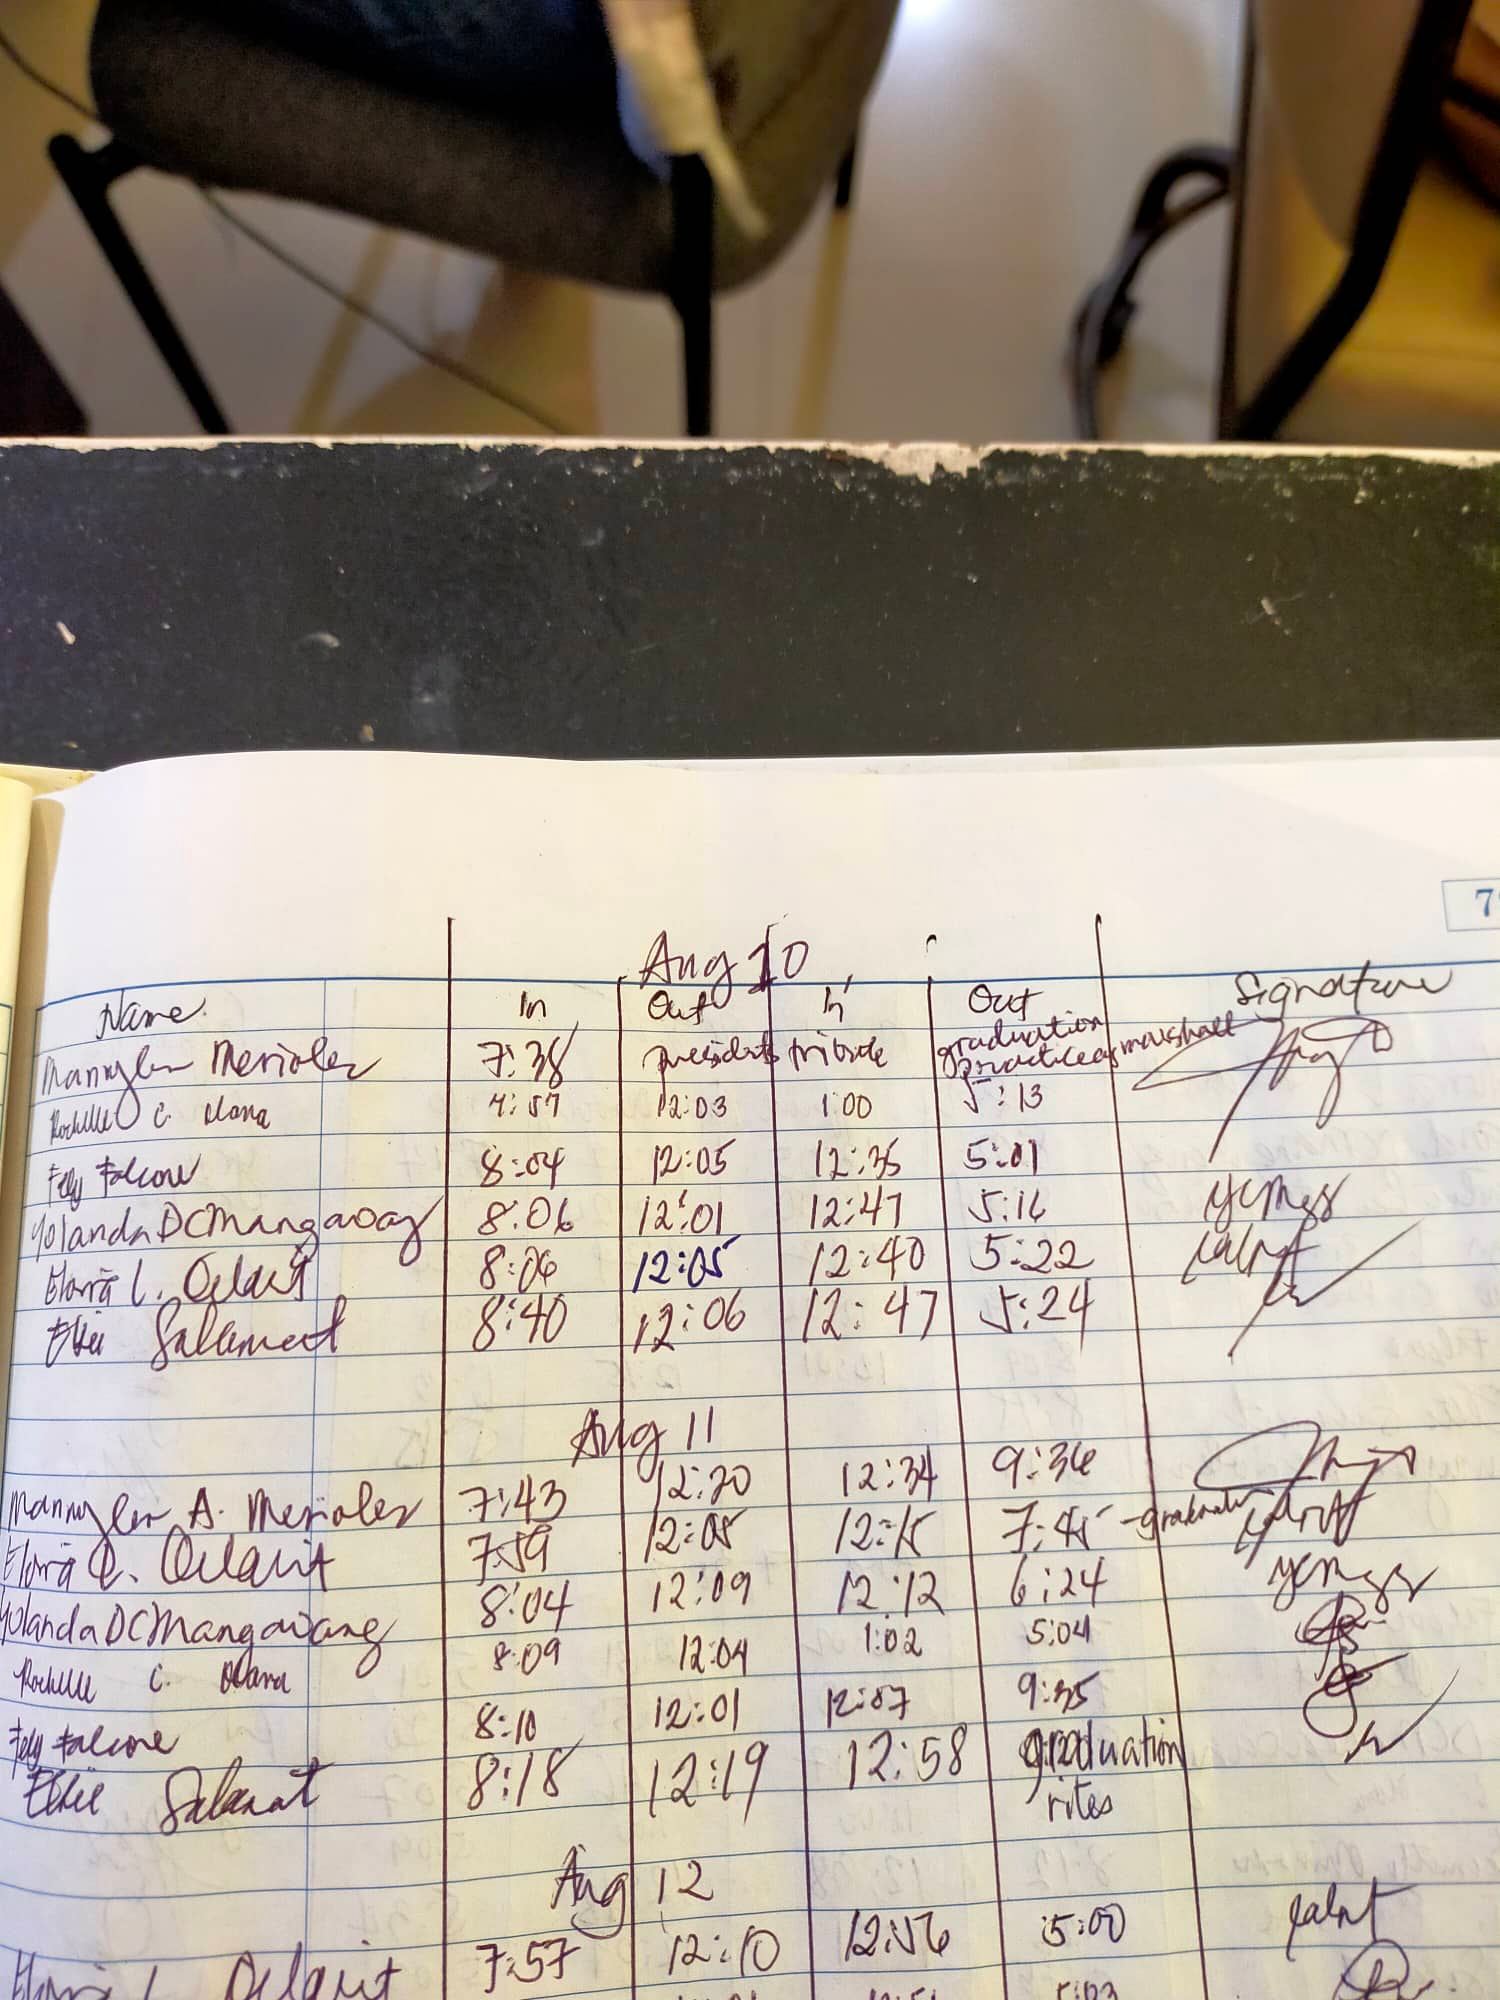 Aug 10
Name In Out In Out Signature
Mannylen Merioles 7:38 president's tribute graduation practice as marshall
Rochelle C. Olana 7:57 12:03 1:00 5:13
Fely Falcone 8:04 12:05 12:35 5:01
Yolanda DC Mangaoang 8:06 12:01 12:47 5:16
Eloria L. 8:06 12:05 12:40 5:22
Ellie Salamat 8:40 12:06 12:47 5:24
Aug 11
Mannylen A. Merioles 7:43 12:20 12:34 9:36
Eloria 7:59 12:08 12:15 7:45 - graduation
Yolanda DC Mangaoang 8:04 12:09 12:12 6:24
Rochelle C. Olana 8:09 12:04 1:02 5:04
Fely Falcone 8:10 12:01 12:57 9:35
Ellie Salamat 8:18 12:19 12:58 graduation
rites
Aug 12
Eloria L. 7:57 12:10 12:56 5:00